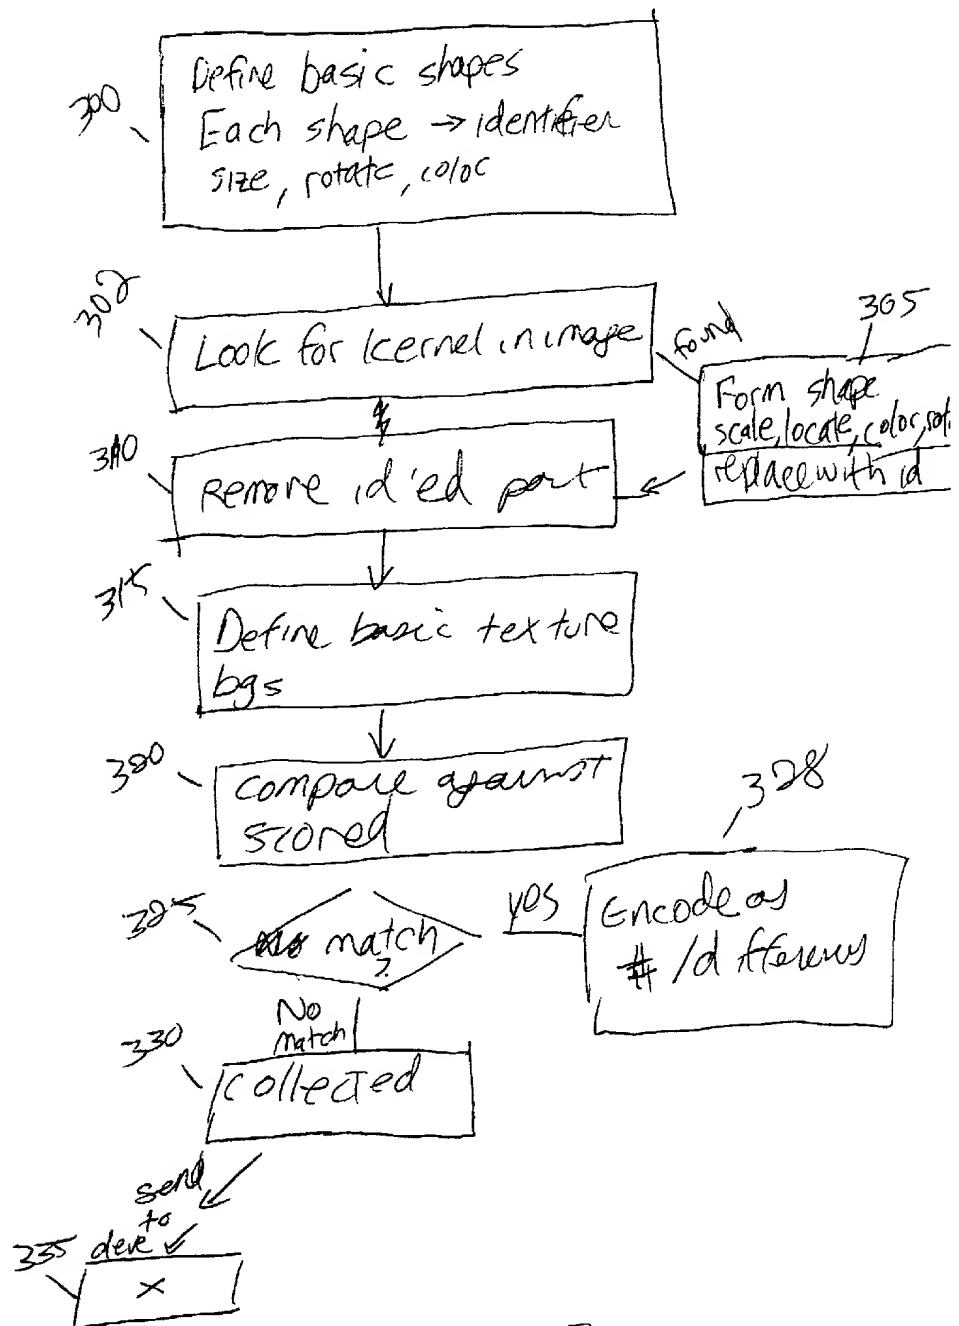 300
Define basic shapes
Each shape → identifier
size, rotate, color
302
Look for kernel in image
found
305
Form shape
scale, locate, color, rot
replace with id
310
Remove id'ed part
315
Define basic texture
bgs
320
compare against
stored
325
match
?
yes
328
Encode as
# / differences
No
match
330
collected
send
to
335
X